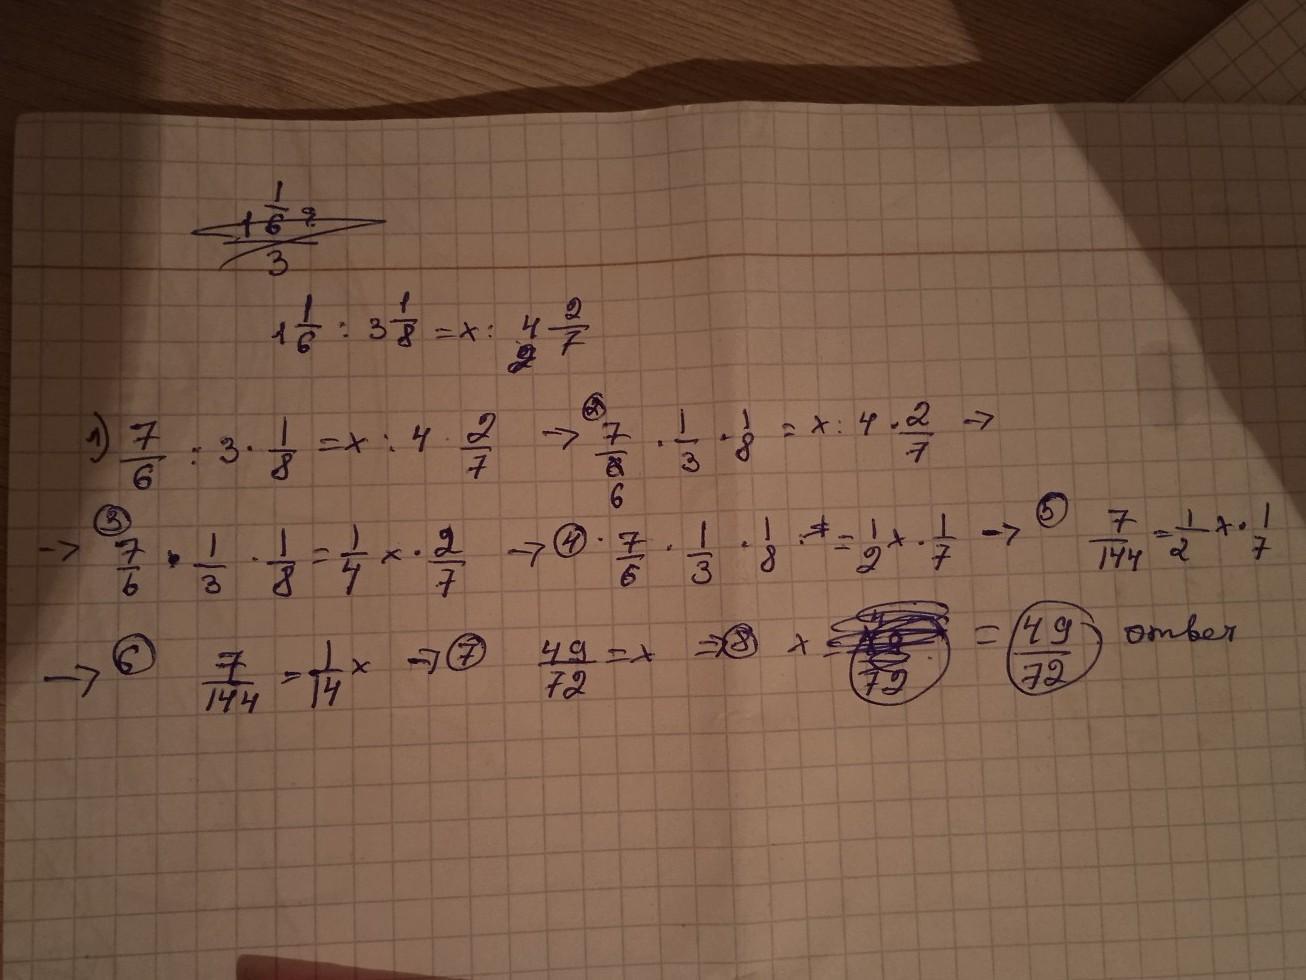 1 1/6 : 3 1/8 = x : 4 2/7
1) 7/6 : 3 · 1/8 = x : 4 · 2/7 → ② 7/6 · 1/3 · 1/8 = x : 4 · 2/7 →
→ ③ 7/6 · 1/3 · 1/8 = 1/4 x · 2/7 → ④ · 7/6 · 1/3 · 1/8 = 1/2 x · 1/7 → ⑤ 7/144 = 1/2 x · 1/7
→ ⑥ 7/144 = 1/14 x → ⑦ 49/72 = x ⇒ ⑧ x = 72 = 49/72 ответ